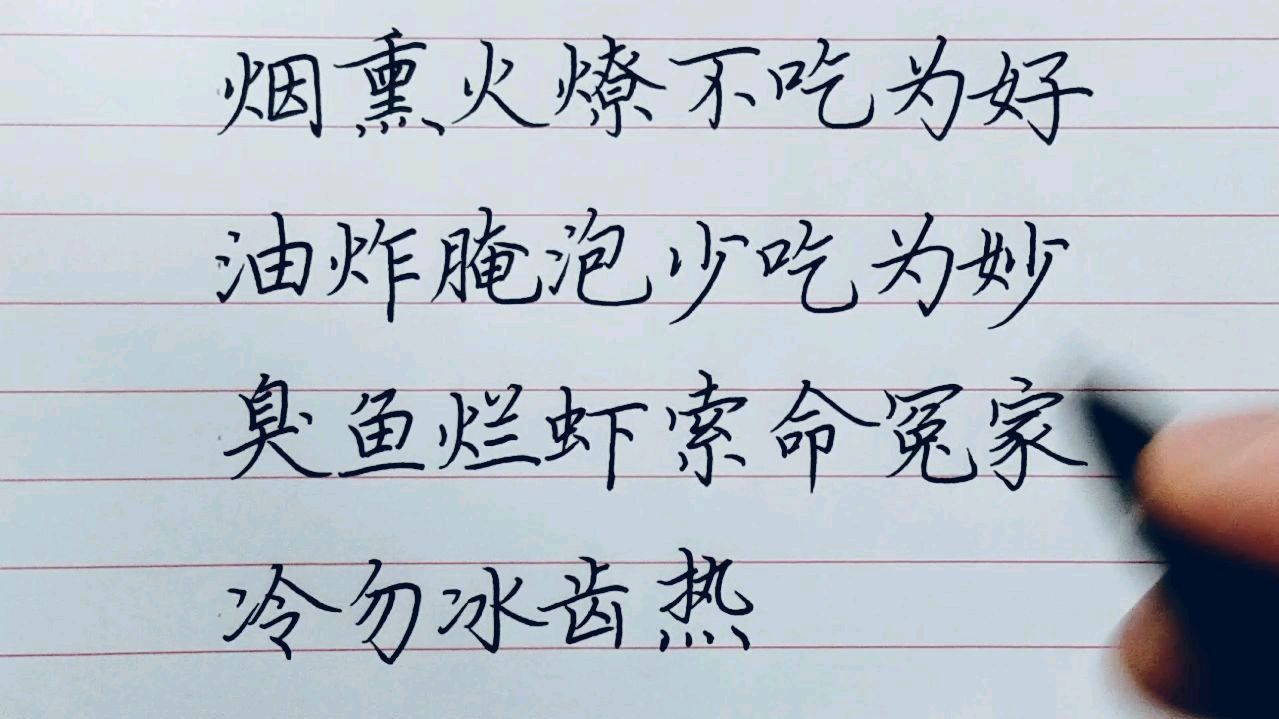 烟熏火燎不吃为好
油炸腌泡少吃为妙
臭鱼烂虾索命冤家
冷勿冰齿热